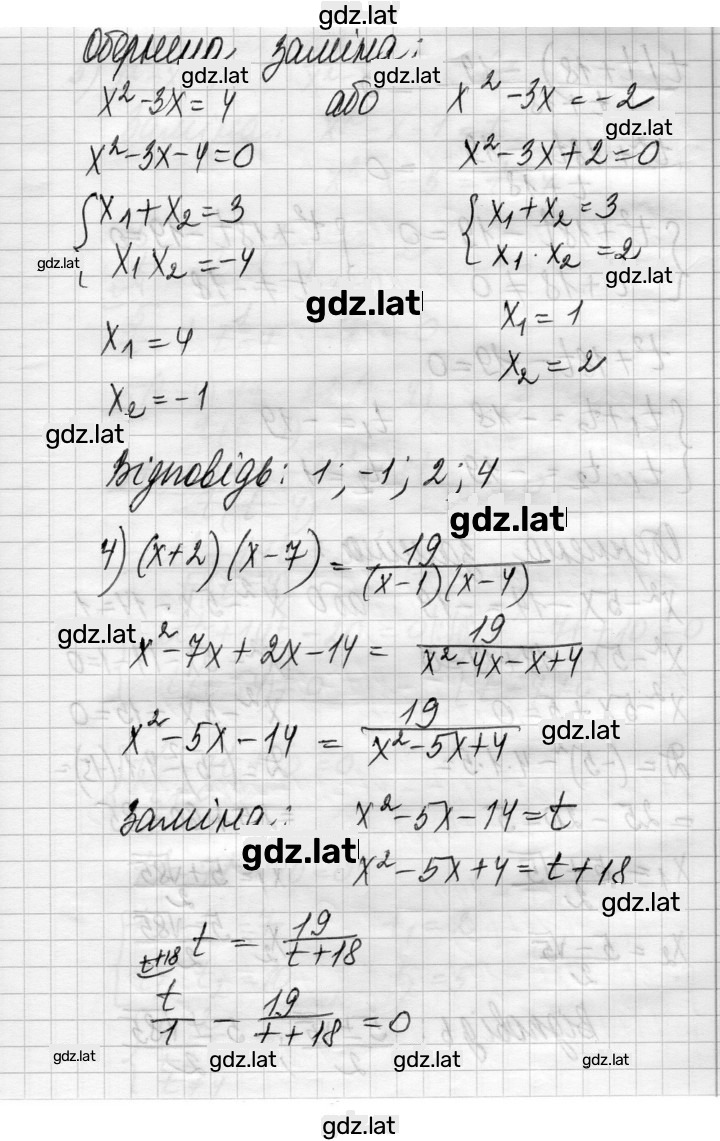 gdz.lat
Обернена заміна:
gdz.lat gdz.lat
x² - 3x = 4 або x² - 3x = -2
gdz.lat
x² - 3x - 4 = 0 x² - 3x + 2 = 0
{ x₁ + x₂ = 3 { x₁ + x₂ = 3
x₁ x₂ = -4 x₁ · x₂ = 2
gdz.lat gdz.lat
gdz.lat
x₁ = 4 x₁ = 1
x₂ = -1 x₂ = 2
gdz.lat
Відповідь: 1; -1; 2; 4
gdz.lat
4) (x+2)(x-7) = 19/((x-1)(x-4))
gdz.lat
x² - 7x + 2x - 14 = 19/(x² - 4x - x + 4)
x² - 5x - 14 = 19/(x² - 5x + 4)
gdz.lat
Заміна: x² - 5x - 14 = t
gdz.lat
x² - 5x + 4 = t + 18
gdz.lat
t+18 t = 19/(t+18)
t/1 - 19/(t+18) = 0
gdz.lat gdz.lat gdz.lat gdz.lat
gdz.lat